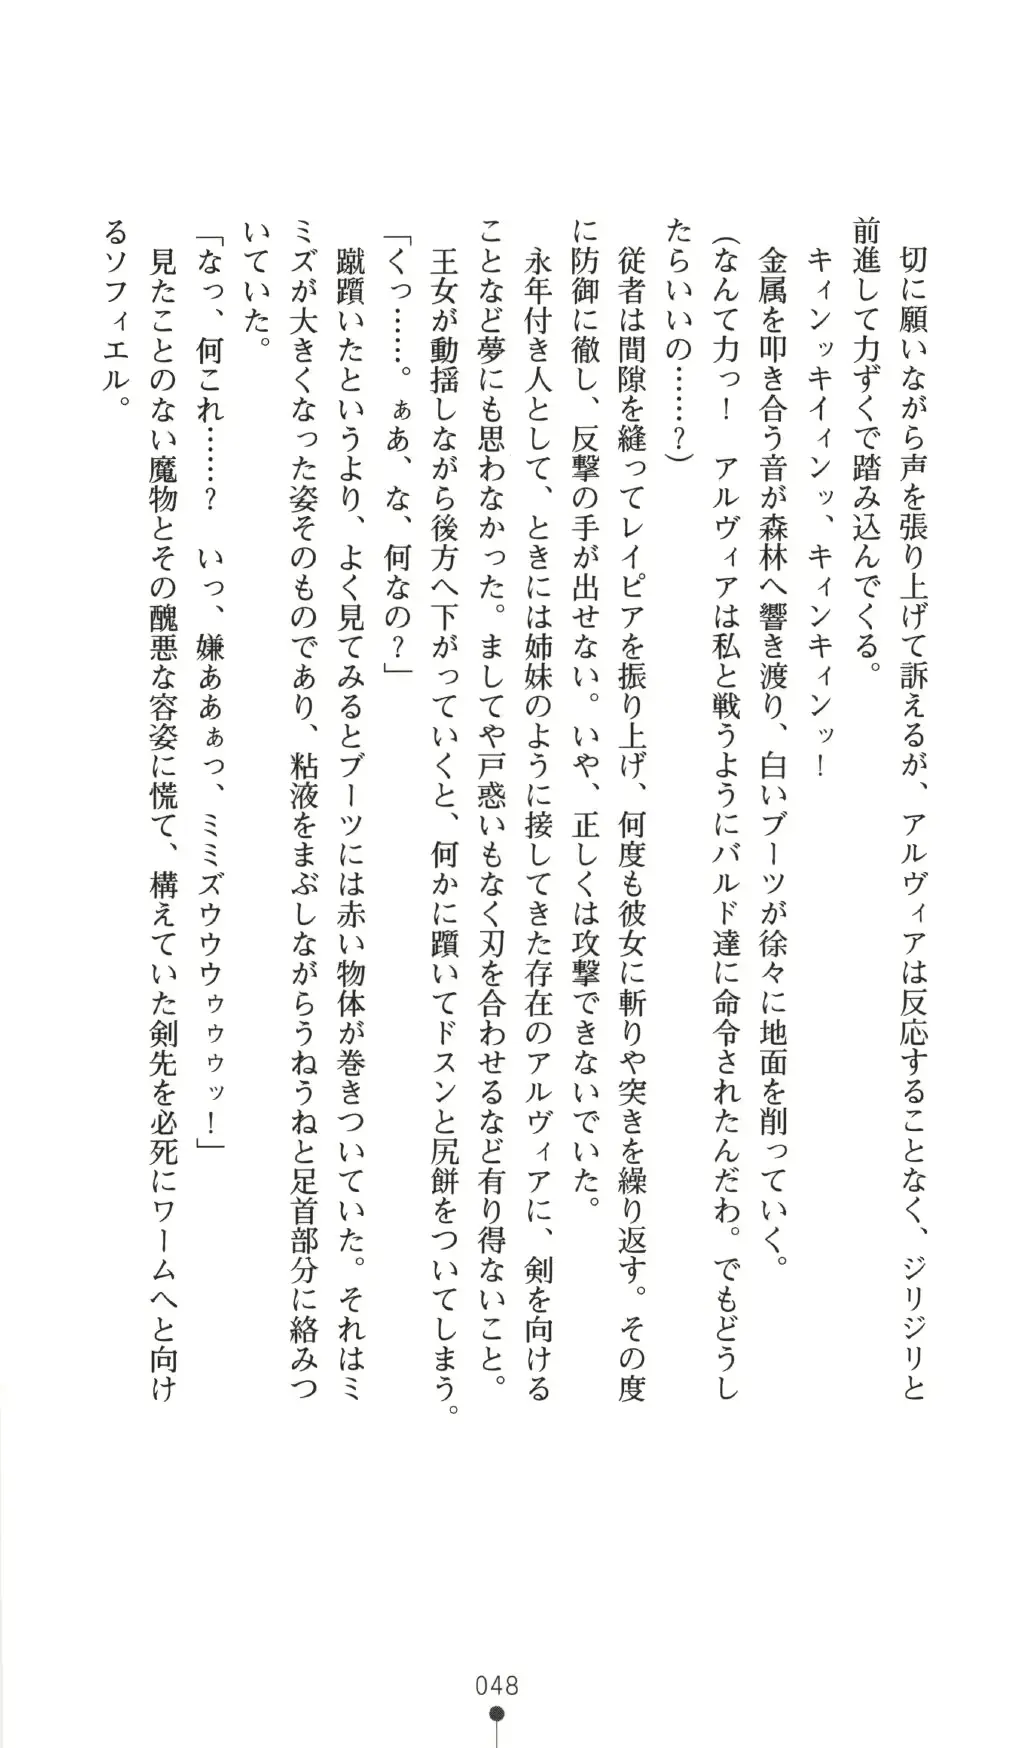 切に願いながら声を張り上げて訴えるが、アルヴィアは反応することなく、ジリジリと
前進して力ずくで踏み込んでくる。
キィンッキイィンッ、キィンキィンッ！
金属を叩き合う音が森林へ響き渡り、白いブーツが徐々に地面を削っていく。
（なんて力っ！　アルヴィアは私と戦うようにバルド達に命令されたんだわ。でもどうし
たらいいの……？）
従者は間隙を縫ってレイピアを振り上げ、何度も彼女に斬りや突きを繰り返す。その度
に防御に徹し、反撃の手が出せない。いや、正しくは攻撃できないでいた。
永年付き人として、ときには姉妹のように接してきた存在のアルヴィアに、剣を向ける
ことなど夢にも思わなかった。ましてや戸惑いもなく刃を合わせるなど有り得ないこと。
王女が動揺しながら後方へ下がっていくと、何かに躓いてドスンと尻餅をついてしまう。
「くっ……。ぁあ、な、何なの？」
蹴躓いたというより、よく見てみるとブーツには赤い物体が巻きついていた。それはミ
ミズが大きくなった姿そのものであり、粘液をまぶしながらうねうねと足首部分に絡みつ
いていた。
「なっ、何これ……？　いっ、嫌ああぁっ、ミミズウウウゥゥゥッ！」
見たことのない魔物とその醜悪な容姿に慌て、構えていた剣先を必死にワームへと向け
るソフィエル。
048